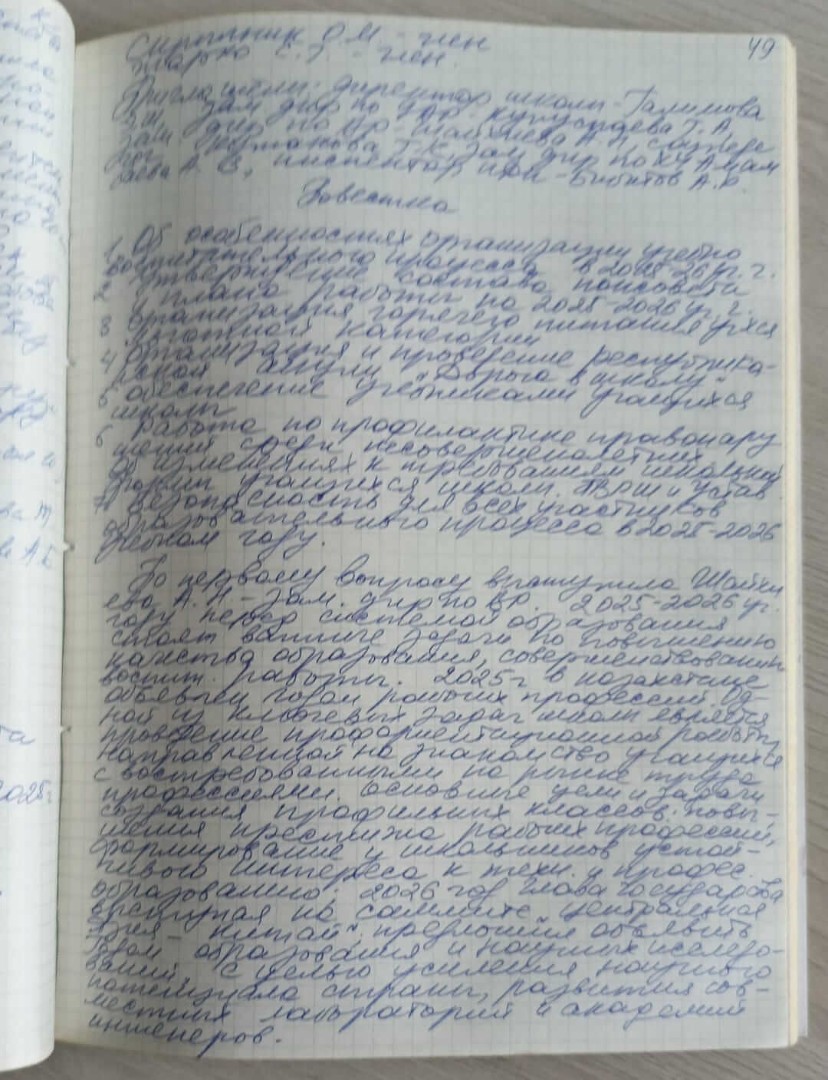 49
Скрыльник О.М - член
Приглашены: директор школы - Галимова
зам дир по
зам. дир по ВР - Шайхиева А.Н,
зам дир по ХЧ Амам
баева А. В, инспектор ПДН - А.К.
Повестка
1 Об особенностях организации учебно
воспитательного процесса в 2025-26 уч. г.
2 Утверждение состава попсовета
и плана работы на 2025-2026 уч. г.
3 Организация горячего питания уч-ся
льготной категории
4 Организация и проведение республика-
нской акции "Дорога в школу"
5 Обеспечение учебниками учащихся
школы
6 Работа по профилактике правонару
шений среди несовершеннолетних
Об изменениях к требованиям школьной
формы учащихся школы. ПВРШ и Устав
7 Безопасность для всех участников
образовательного процесса в 2025-2026
учебном году.
По первому вопросу выступила Шайхи
ева А.Н - зам. дир по ВР. 2025-2026 уч.
году перед системой образования
стоят важные задачи по повышению
качества образования, совершенствованию
воспит. работы. 2025 г в Казахстане
объявлен годом рабочих профессий. Од-
ной из ключевых задач школы является
проведение профориентационной работы,
направленной на знакомство учащихся
с востребованными на рынке труда
профессиями. Основные цели и задачи
создания профильных классов: повы-
шения престижа рабочих профессий,
формирование у школьников устой-
чивого интереса к техн. и профес.
образованию. 2026 год Глава государства
выступая на саммите "Центральная
Азия - Китай", предложил объявить
Годом образования и научных исследо-
ваний с целью усиления научного
потенциала страны, развития сов-
местных лабораторий и академий
инженеров.